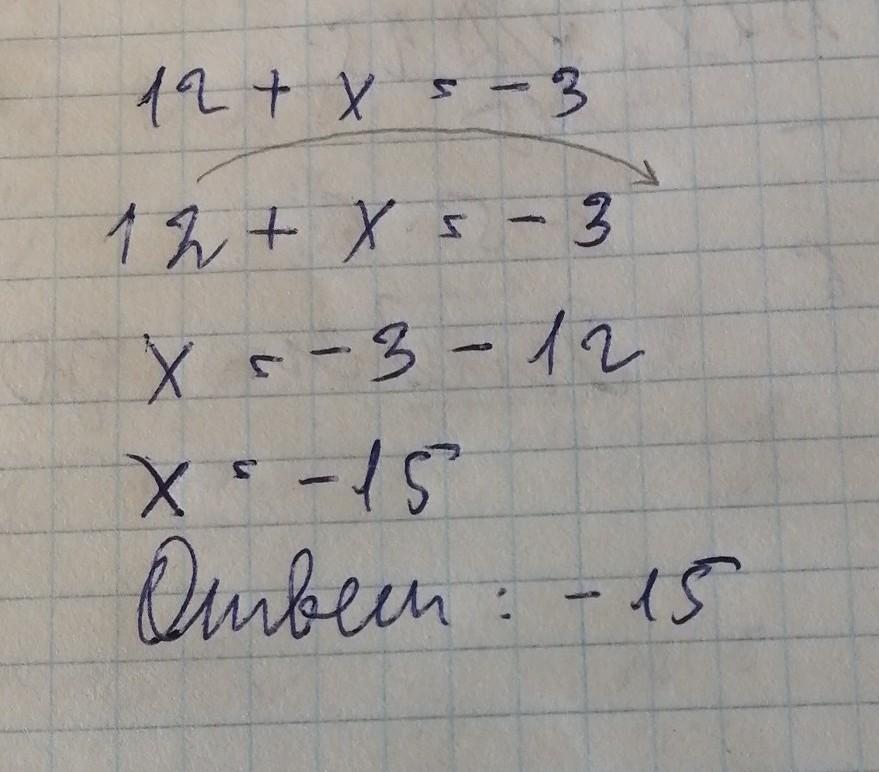 12 + x = -3
12 + x = -3
x = -3 - 12
x = -15
Ответ: -15